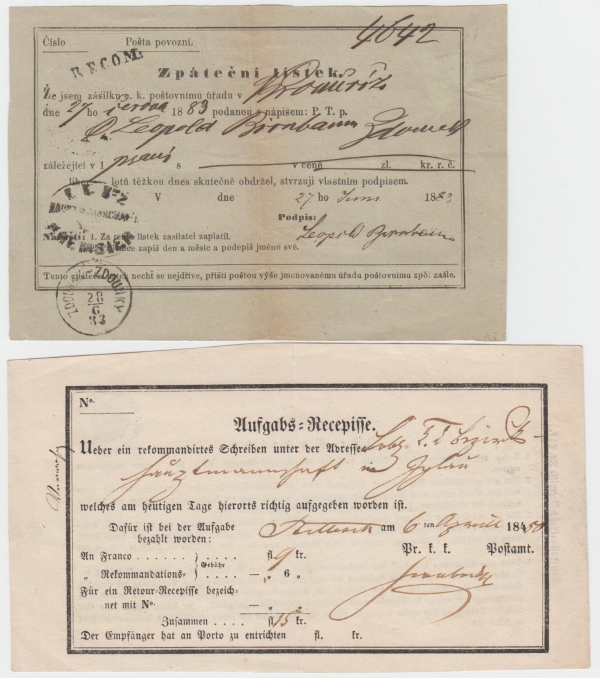 Číslo Pošta povozní. 4642
RECOM.
Zpáteční lístek.
Že jsem zásilku c. k. poštovnímu úřadu v Kroměříž
dne 27 ho června 1883 podanou s nápisem: P. T. p.
Leopold Birnbaum
záležející v 1 psaní s v ceně zl. kr. r. č.
lotů těžkou dnes skutečně obdržel, stvrzuji vlastním podpisem.
V dne 27 ho Juni 1883
Podpis:
Leopold Birnbaum
1. Za tento lístek zasílatel zaplatil.
zapiš den a měsíc a podepiš jméno své.
Tento zpáteční lístek nechť se nejdříve, příští poštou výše jmenovanému úřadu poštovnímu zpět zašle.
ZDOUNKY
28
6
83
No.
Aufgabs-Recepisse.
Ueber ein rekommandirtes Schreiben unter der Adresse Löbl. k. k. Bezirks-
hauptmannschaft in Iglau
welches am heutigen Tage hierorts richtig aufgegeben worden ist.
Dafür ist bei der Aufgabe
bezahlt worden:
am 6 ten April 18
An Franco . . . . . . fl. 9 kr. Pr. k. k. Postamt.
Gebühr
„ Rekommandations- —„ 6 „
Für ein Retour-Recepisse bezeich-
net mit No. — „ „
Zusammen . . . . fl. 15 kr.
Der Empfänger hat an Porto zu entrichten fl. kr.